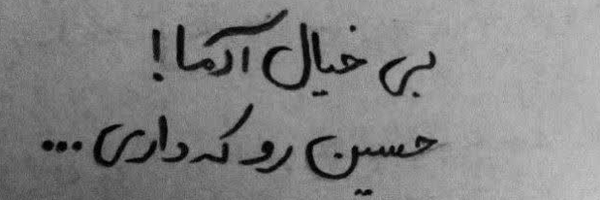 بی خیال آدما!
حسین رو که داری...